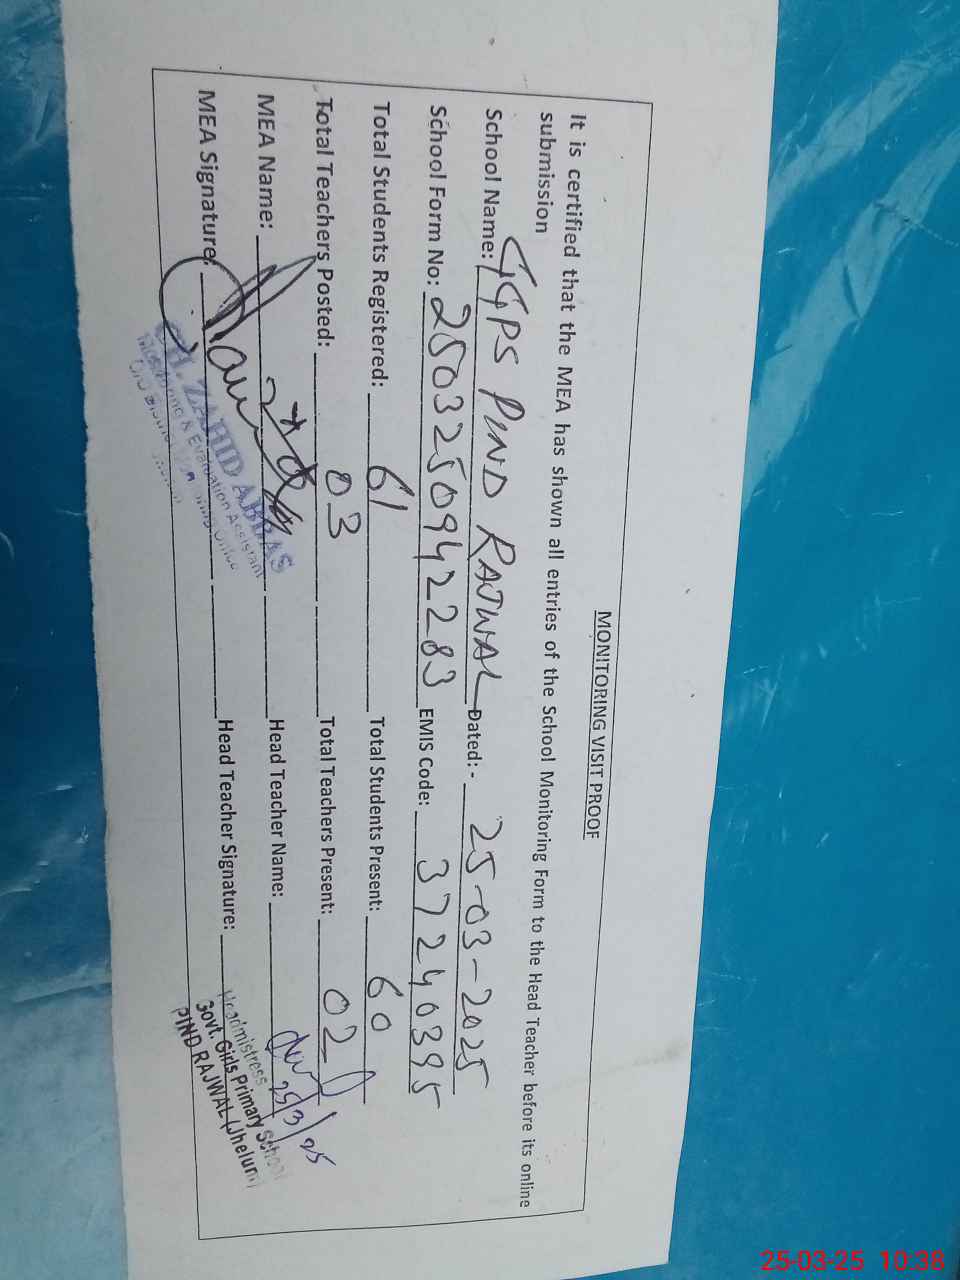 MONITORING VISIT PROOF
It is certified that the MEA has shown all entries of the School Monitoring Form to the Head Teacher before its online
submission
School Name: GGPS PIND RAJWAL Dated:- 25-03-2025
School Form No: 2503250942283 EMIS Code: 37240395
Total Students Registered: 61 Total Students Present: 60
Total Teachers Posted: 03 Total Teachers Present: 02
MEA Name: Head Teacher Name: 25/3/25
MEA Signature: Head Teacher Signature:
CH. ZAHID ABBAS
Monitoring & Evaluation Assistant
Headmistress
Govt. Girls Primary School
PIND RAJWAL (Jhelum)
25-03-25 10:38